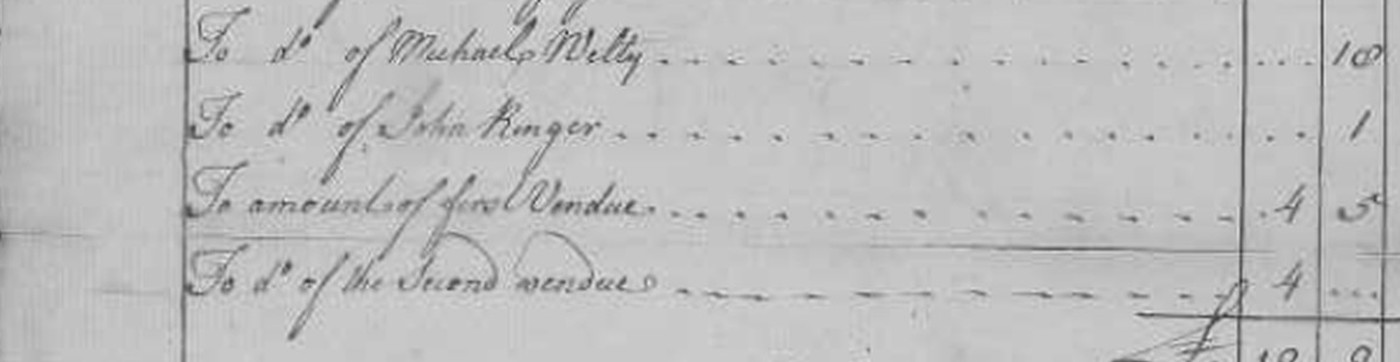 To do of Michael Welty . . . . . . . . . . . . . . . 18
To do of John Ringer . . . . . . . . . . . . . . . 1
To amount of first Vendue . . . . . . . . . . . . 4 5
To do of the Second vendue . . . . . . . . . . . 4 ...